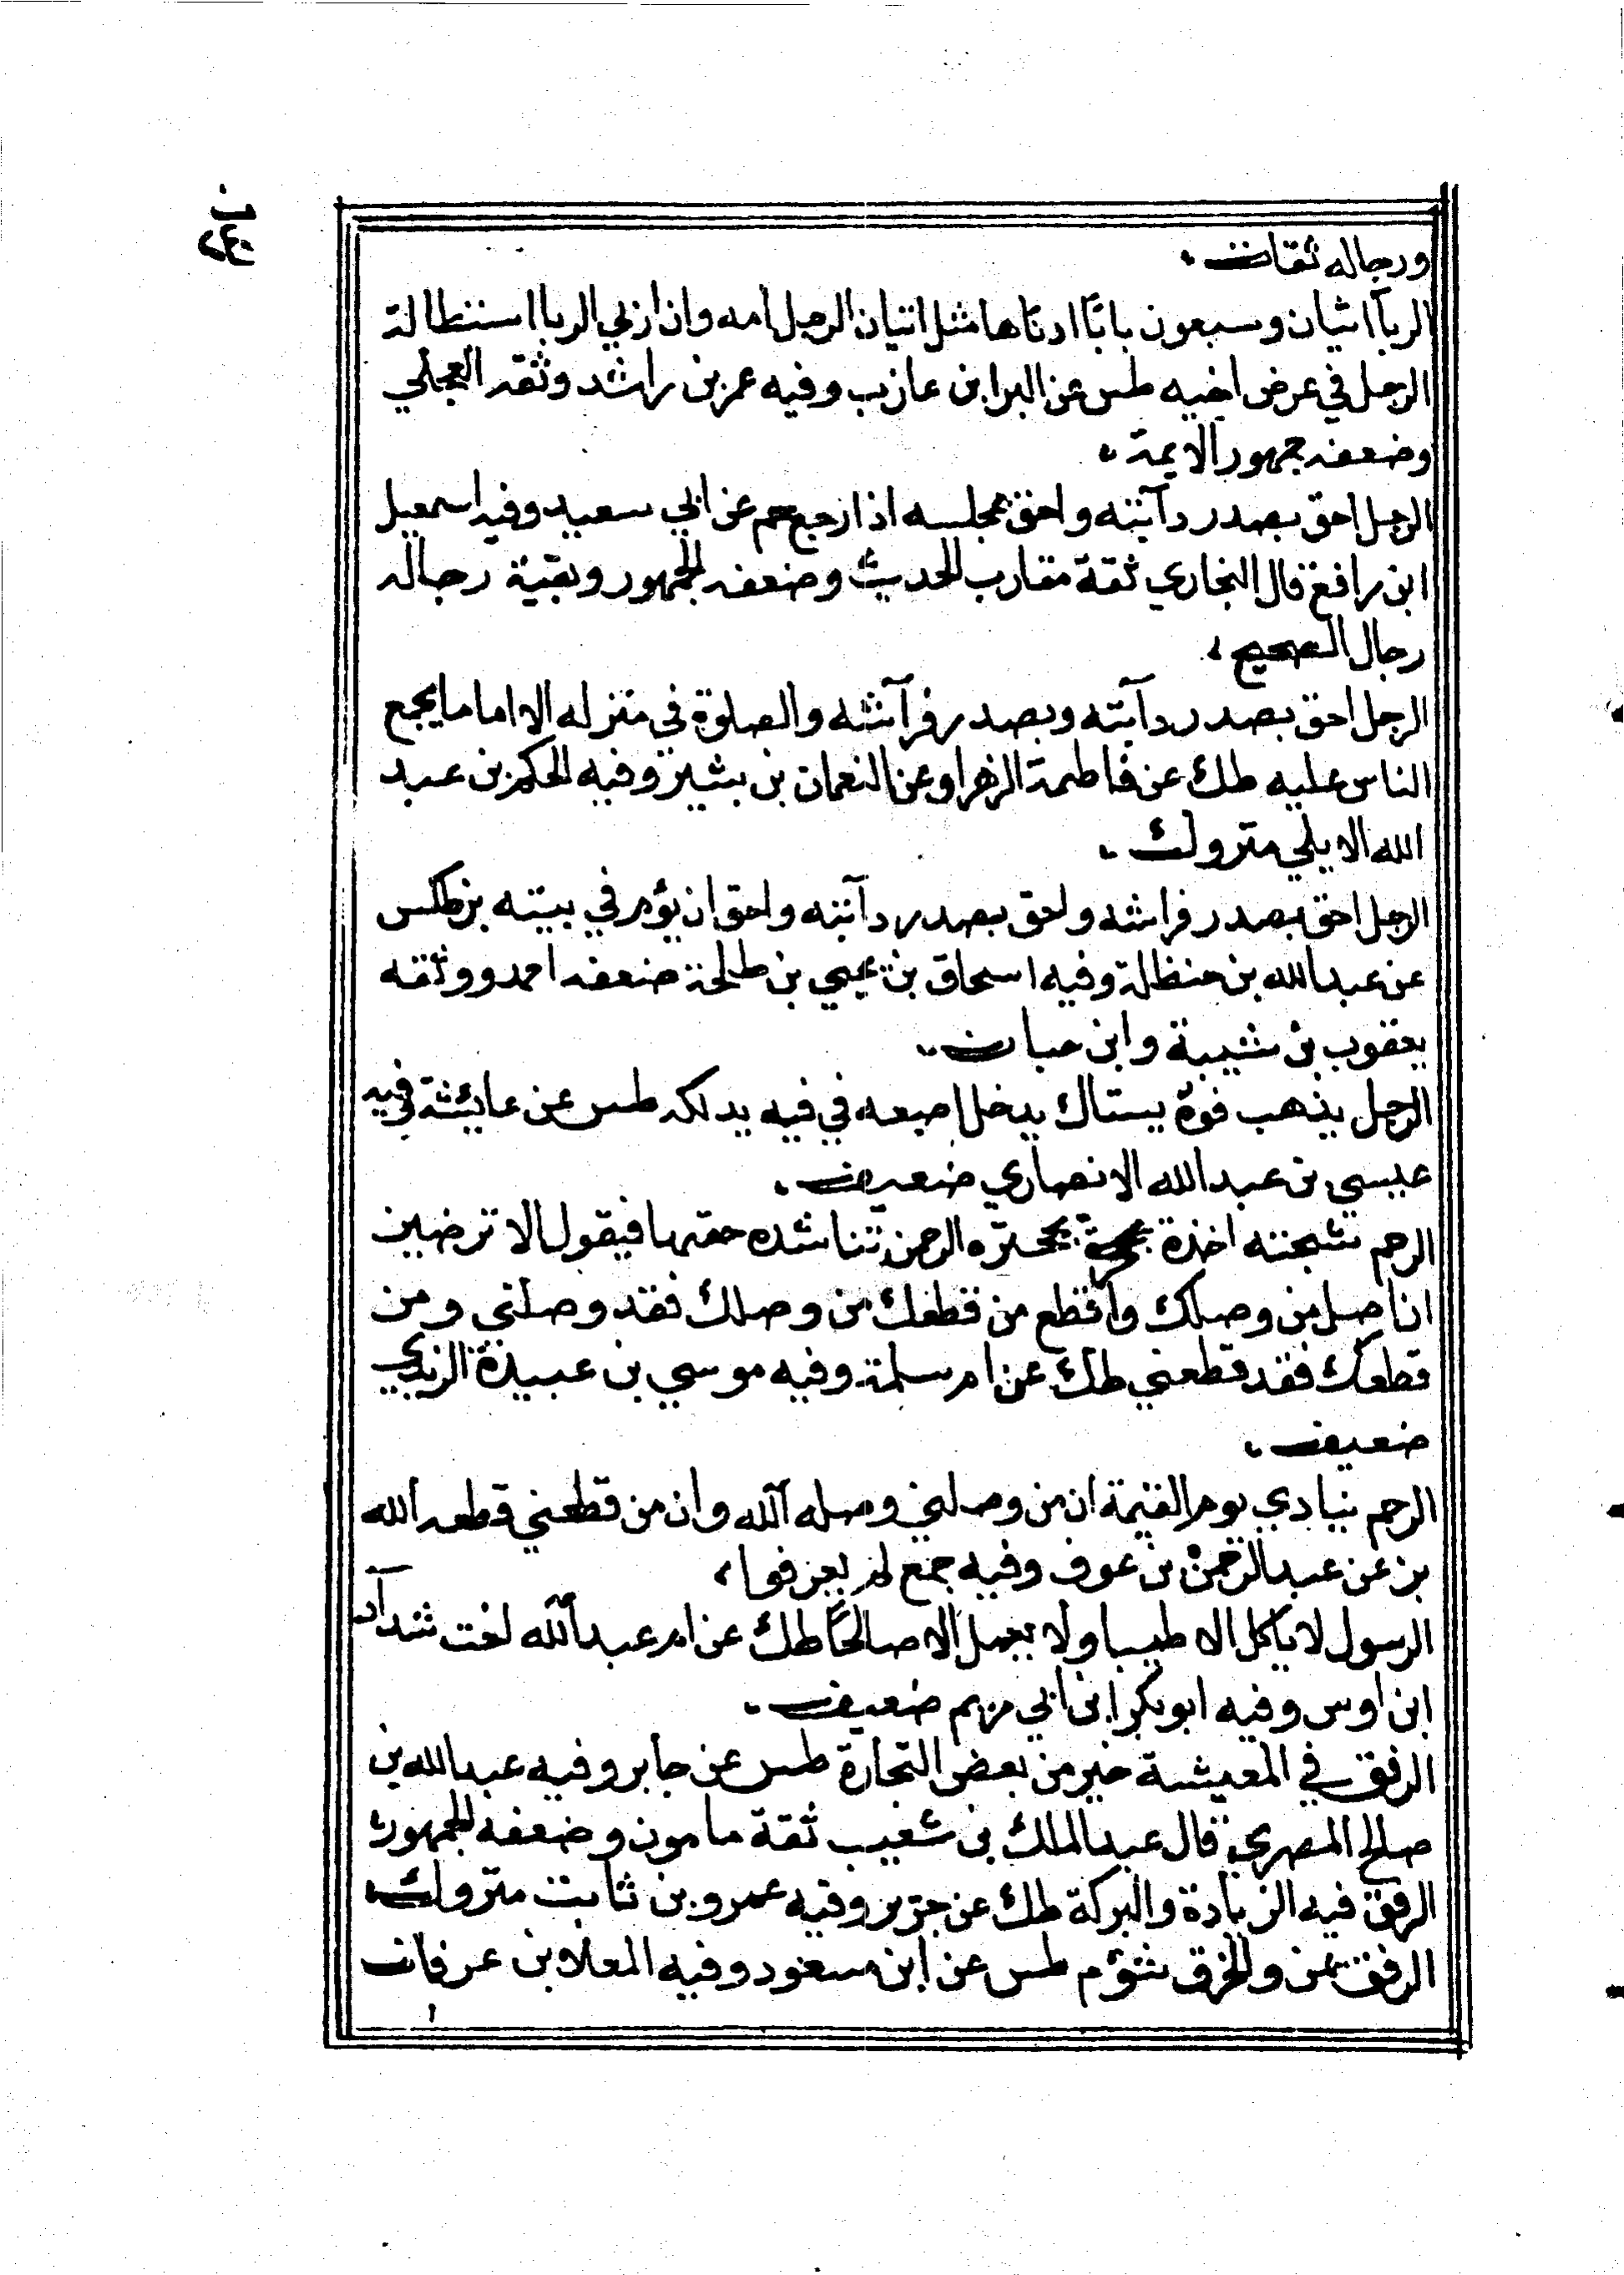 ورجاله ثقات
الربا اثنان وسبعون بابا ادناها مثل اتيان الرجل امه وان اربي الربا استطالة
الرجل في عرض اخيه طس عن البرا بن عازب وفيه عمر بن راشد وثقه العجلي
وضعفه جمهور الايمة
الرجل احق بصدر دآبته واحق بمجلسه اذا رجع حم عن ابي سعيد وفيه اسمعيل
ابن رافع قال البخاري ثقة مقارب الحديث وضعفه الجمهور وبقية رجاله
رجال الصحيح
الرجل احق بصدر دآبته وبصدر فرآشه والصلوة في منزله الا اماما يجمع
الناس عليه طك عن فاطمة الزهرا وعن النعمان بن بشير وفيه الحكم بن عبد
الله الايلي متروك
الرجل احق بصدر فراشه واحق بصدر دآبته واحق ان يؤم في بيته بز طكس
عن عبد الله بن حنظلة وفيه اسحاق بن يحيي بن طلحة ضعفه احمد ووثقه
يعقوب بن شيبة وابن حبان
الرجل يذهب فوه يستاك يدخل اصبعه في فيه يدلكه طس عن عايشة فيه
عيسي بن عبد الله الانصاري ضعيف
الرحم شجنة اخذة بحجزة الرحمن تناشده حقها فيقول الا ترضين
ان اصل من وصلك واقطع من قطعك من وصلك فقد وصلني ومن
قطعك فقد قطعني طك عن ام سلمة وفيه موسي بن عبيدة الربذي
ضعيف
الرحم ينادي يوم القيمة ان من وصلني وصله آلله وان من قطعني قطعه الله
بز عن عبد الرحمن بن عوف وفيه جمع لم يعرفوا
الرسول لا ياكل الا طيبا ولا يعمل الا صالحا طك عن ام عبد آلله اخت شدآد
ابن اوس وفيه ابو بكر ابن ابي مريم ضعيف
الرفق في المعيشة خير من بعض التجارة طس عن جابر وفيه عبد الله بن
صالح المصري قال عبد الملك بن شعيب ثقة مامون وضعفه الجمهور
الرفق فيه الزيادة والبركة طك عن جرير وفيه عمرو بن ثابت متروك
الرفق يمن والخرق شؤم طس عن ابن مسعود وفيه المعلا بن عرفان